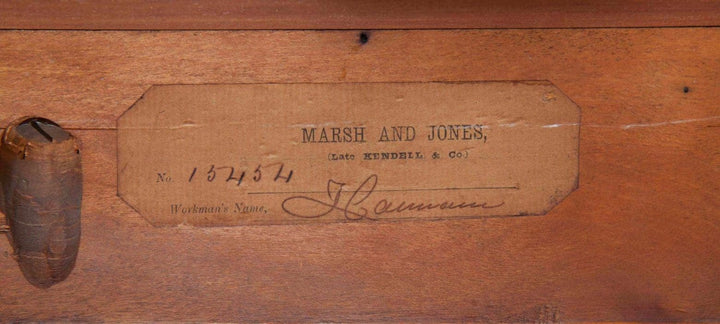 MARSH AND JONES,
(Late KENDELL & Co)
No. 15454
Workman's Name,